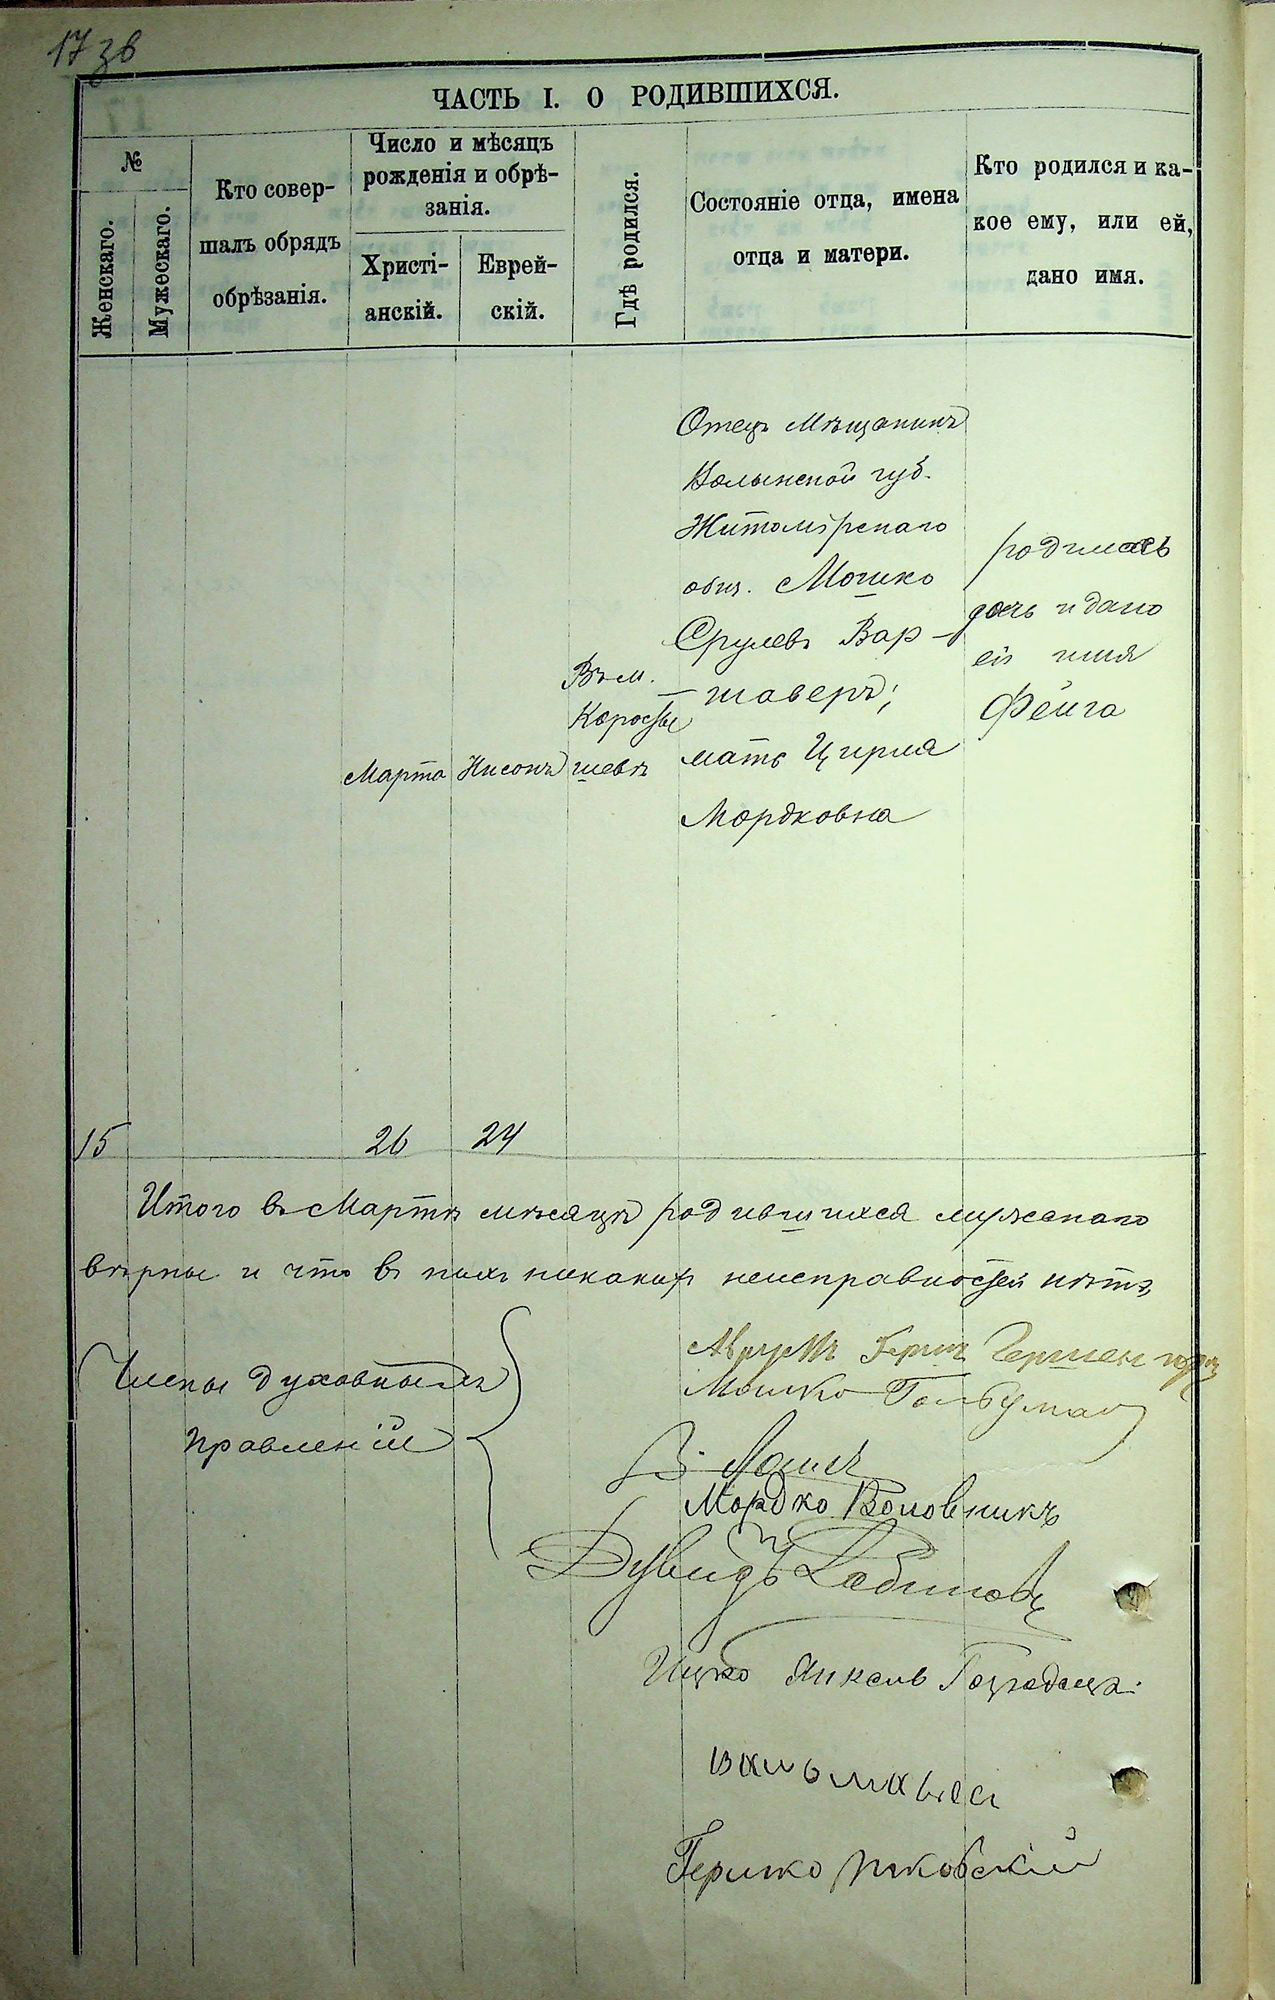 17 зв
ЧАСТЬ I. О РОДИВШИХСЯ.
№
Женскаго.
Мужескаго.
Кто совер-
шалъ обрядъ
обрѣзанія.
Число и мѣсяцъ
рожденія и обрѣ-
занія.
Христі-
анскій.
Еврей-
скій.
Гдѣ родился.
Состояніе отца, имена
отца и матери.
Кто родился и ка-
кое ему, или ей,
дано имя.
15
26
Марта
24
Нисонъ
Въ м.
Коросты
шевѣ
Отецъ Мѣщанинъ
Волынской губ.
Житомірскаго
общ. Мошко
Срулевъ Вар-
-шаверъ;
мать Цирля
Мордковна
родилась
дочь и дано
ей имя
Фейга
Итого въ Мартѣ мѣсяцѣ родившихся мужскаго
вѣрны и что въ нихъ никакихъ неисправностей нѣтъ,
Члены духовныхъ
правленій
Мошко Гольдман
Мордко Воловникъ
Дувидъ
Ицко Янкель
Гершко